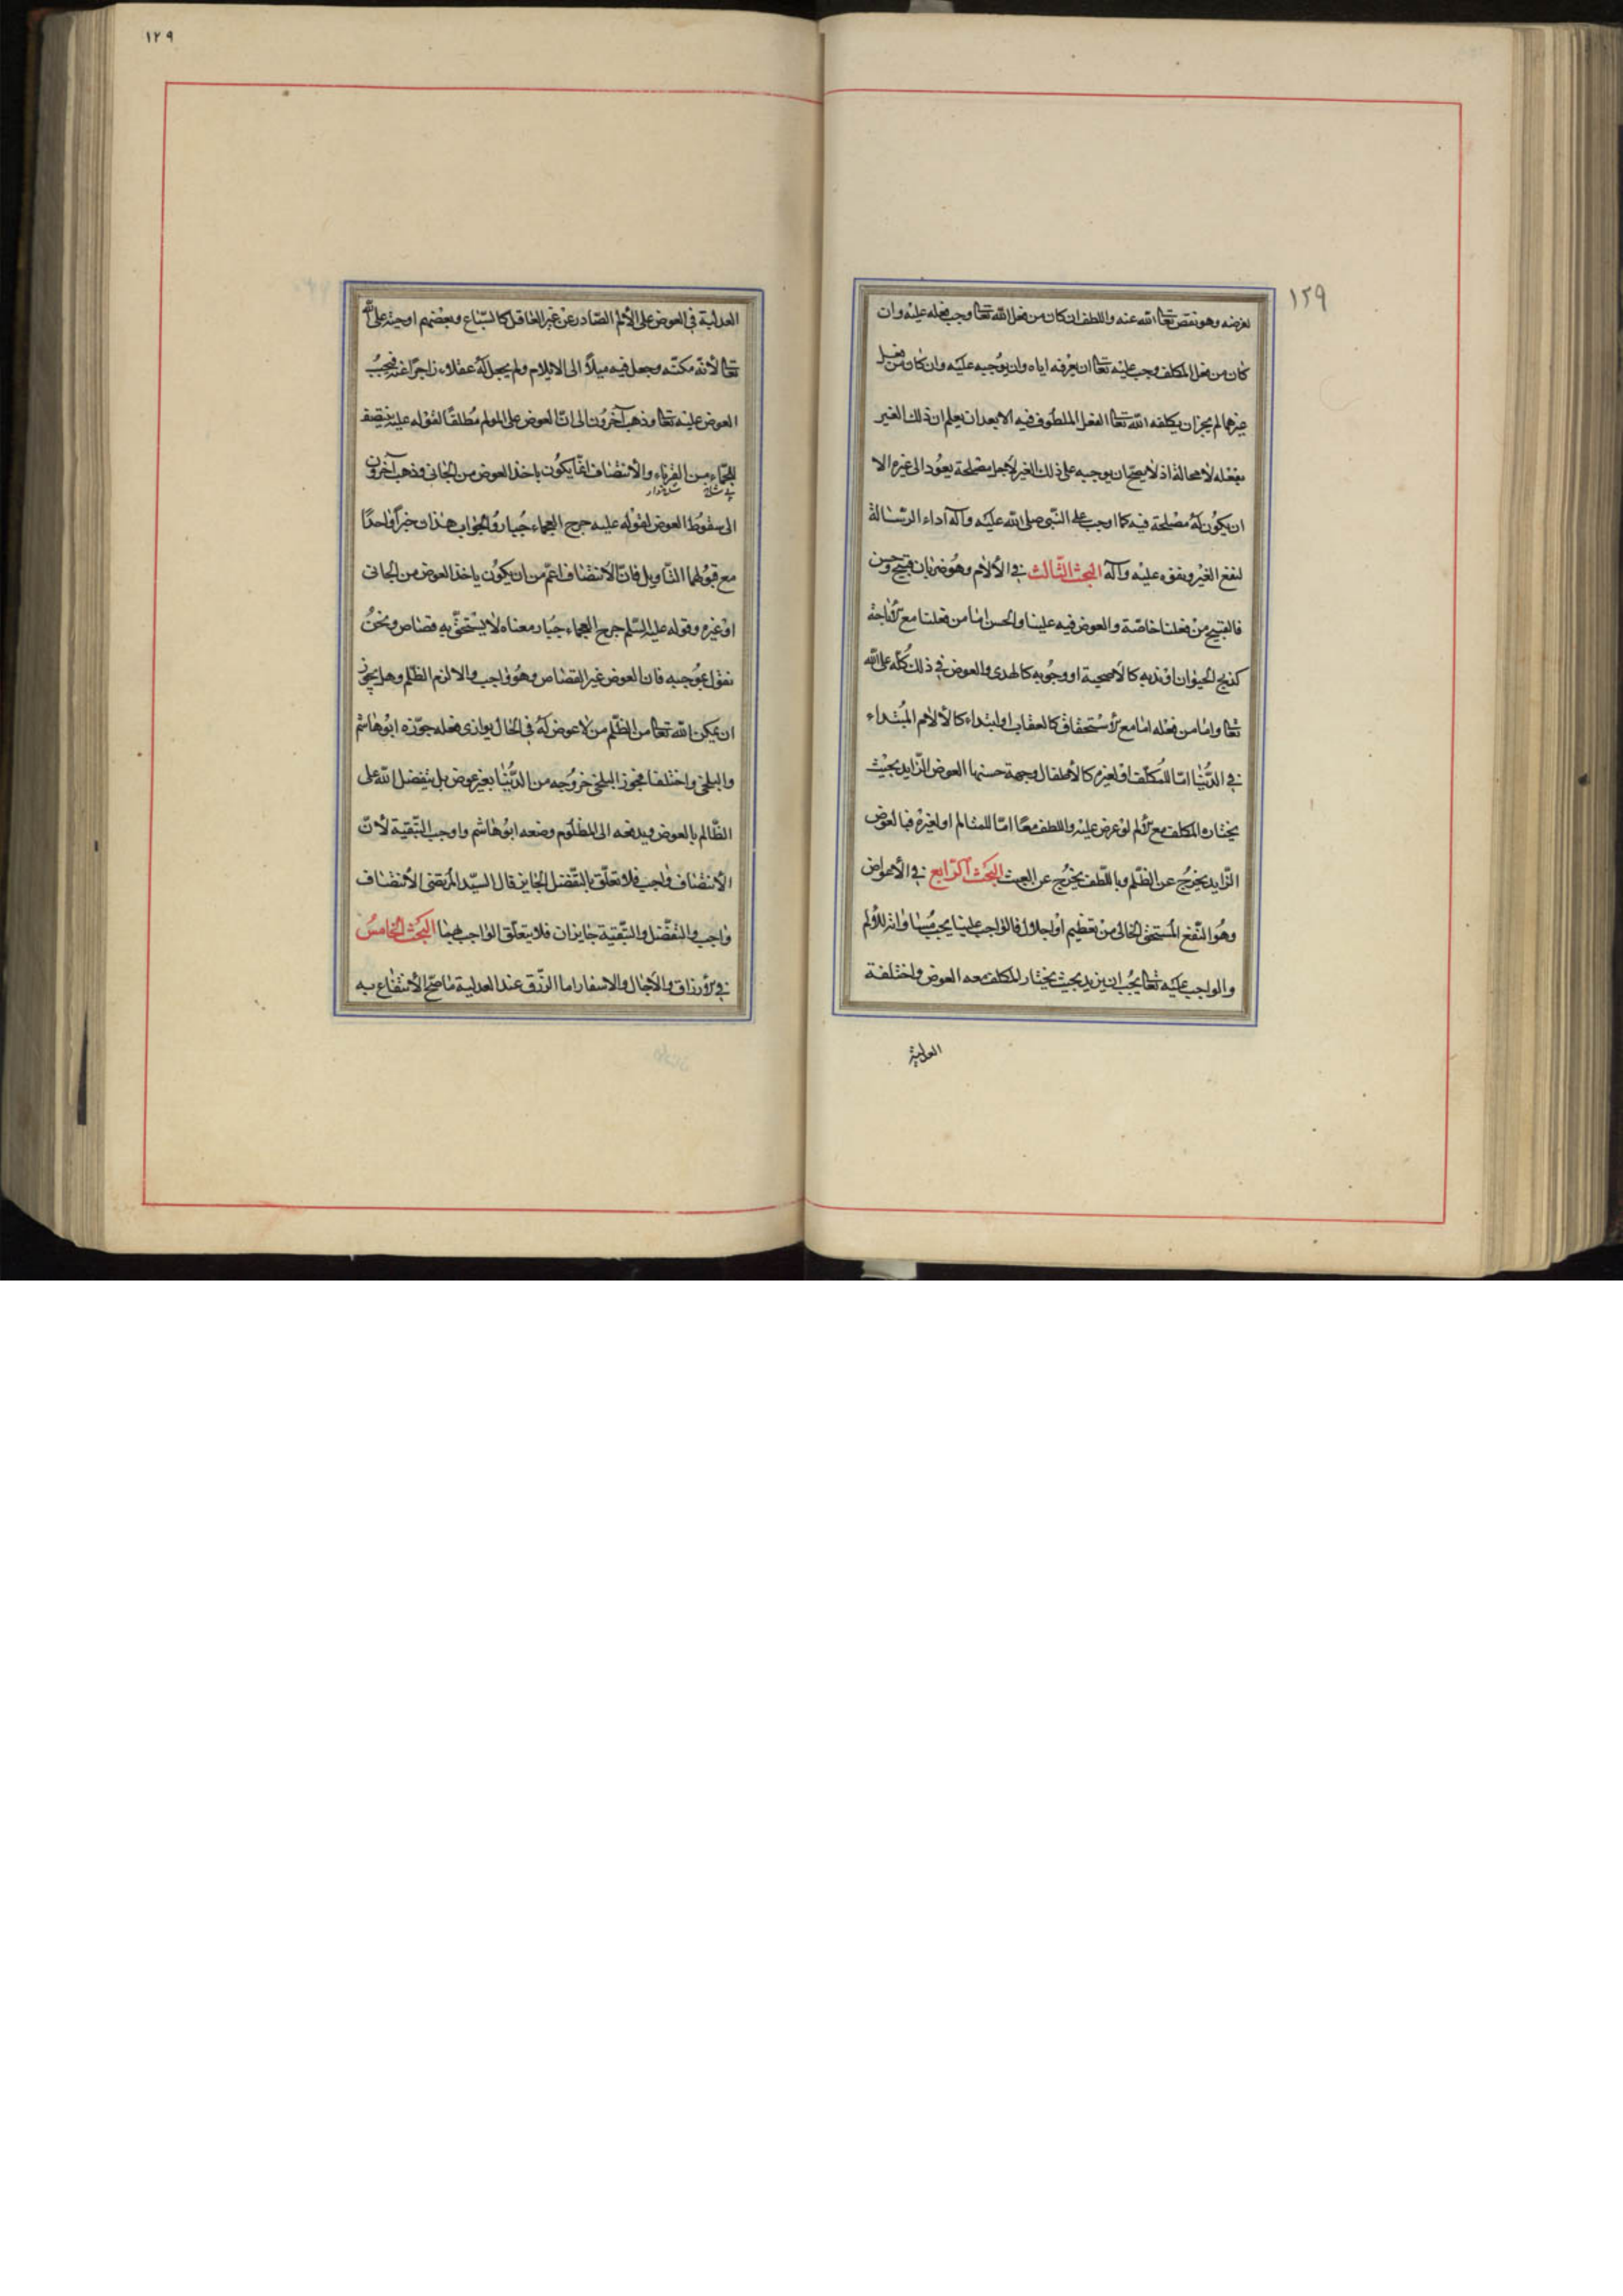 ١٢٩
لغرضه وهو نقض تعالى الله عنه واللطف ان كان من فعل الله تعالى وجب فعله عليه وان
كان من فعل المكلف وجب عليه تعالى ان يعرفه اياه وان يوجبه عليه وان كان من فعل
غيرهما لم يجز ان يكلفه الله تعالى الفعل الملطوف فيه الا بعد ان يعلم ان ذلك الغير
يفعله لا محالة اذ لا يصح ان يوجبه على ذلك الغير لاجل مصلحة يعود الى غيره الا
ان يكون له مصلحة فيه كما اوجب على النبي صلى الله عليه وآله اداء الرسالة
لنفع الغير ونفعه عليه وآله البحث الثالث في الآلام وهو ضربان قبيح وحسن
فالقبيح من فعلنا خاصة والعوض فيه علينا والحسن اما من فعلنا مع الاباحة
كذبح الحيوان او ندبه كالاضحية او وجوبه كالهدى والعوض في ذلك كله على الله
تعالى واما من فعله اما مع الاستحقاق كالعقاب او ابتداء كالآلام المبتداء
في الدنيا امّا للمكلّف او لغيره كالأطفال وجهة حسنها العوض الزايد بحيث
يختاره المكلف مع الألم لو عرض عليه واللطف معًا امّا للمتالم او لغيره فبالعوض
الزايد يخرج عن الظلم وباللطف يخرج عن العبث البحث الرابع في الأعواض
وهو النّفع المستحق الخالى من تعظيم او اجلال فالواجب علينا يجب مساواته للألم
والواجب عليه تعالى يجب ان يزيد بحيث يختار المكلف معه العوض واختلفت
العدلية
١٢٩
العدلية في العوض على الألم الصّادر عن غير العاقل كالسّباع وبعضهم اوجبه على الله
تعالى لأنّه مكنّه وجعل فيه ميلًا الى الايلام ولم يجعل له عقلا زاجرًا عنه فيجب
العوض عليه تعالى وذهب آخرون الى انّ العوض على المولم مطلقًا لقوله عليه ينتصف
للجمّاء من القرناء والأنتصاف انّما يكون باخذ العوض من الجانى وذهب آخرون
بى شاخ شاخدار
الى سقوط العوض لقوله عليه جرح العجماء جبار والجواب هذان خبرا واحدًا
مع قبولهما التّاويل فانّ الانتصاف اعمّ من ان يكون ياخذ العوض من الجانى
او غيره وقوله عليه السّلم جرح العجماء جبار معناه لا يستحقّ به قصاص ونحن
نقول بموجبه فان العوض غير القصاص وهو واجب والا لزم الظلم وهل يجوز
ان يمكن الله تعالى من الظّلم من لا عوض له في الحال يوازى فعله جوّزه ابو هاشم
والبلخى واختلفا فجوز البلخى خروجه من الدّنيا بغير عوض بل يتفضل الله على
الظّالم بالعوض ويدفعه الى المظلوم ومنعه ابو هاشم واوجب التّبقية لأنّ
الأنتصاف واجب فلا تعلّق بالتّفضل الجايز قال السيّد المرتضى الأنتصاف
واجب والتفضّل والتّبقية جايزان فلا يتعلّق الواجب بهما البحث الخامس
في الأرزاق والآجال والاسعار اما الرّزق عند العدلية ما صحّ الأنتفاع به